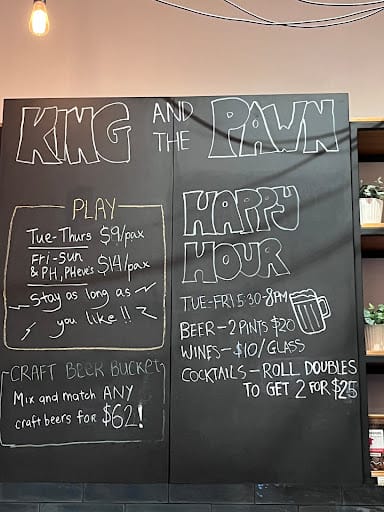 KING AND THE PAWN
PLAY
Tue-Thurs $9/pax
Fri-Sun
& PH, PHeve's $14/pax
Stay as long as
you like!!
CRAFT BEER BUCKET
Mix and match ANY
craft beers for $62!
HAPPY
HOUR
TUE-FRI 5:30-8PM
BEER-2 PINTS $20
WINES-$10/GLASS
COCKTAILS-ROLL DOUBLES
TO GET 2 FOR $25